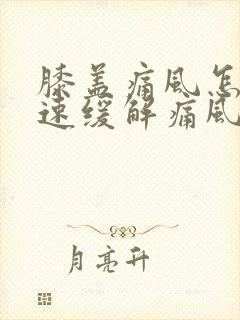 膝盖痛风怎
速缓解痛风
月亮升